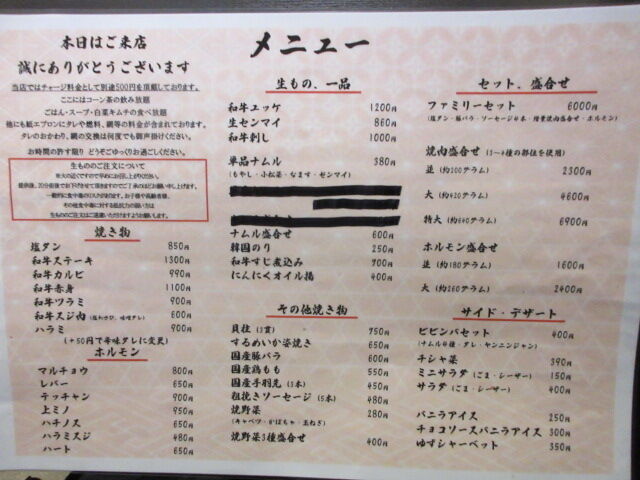 本日はご来店
誠にありがとうございます
当店ではチャージ料金として別途500円を頂戴しております。
ここにはコーン茶の飲み放題
ごはん・スープ・白菜キムチの食べ放題
他にも紙エプロンにタレや燃料、網等の料金が含まれております。
タレのおかわり、網の交換は何度でも御声掛けください。
お時間の許す限り どうぞごゆっくりお過ごしください。
生もののご注文について
生もののご注文はご遠慮いただけますようお願い致します。
焼き物
塩タン 850円
和牛ステーキ 1300円
和牛カルビ 990円
和牛赤身 1100円
和牛ツラミ 900円
和牛スジ肉 600円
ハラミ 900円
(+50円で辛味ダレに変更)
ホルモン
マルチョウ 800円
レバー 650円
テッチャン 900円
上ミノ 950円
ハチノス 650円
ハラミスジ 480円
ハート 650円
メニュー
生もの、一品
和牛ユッケ 1200円
生センマイ 860円
和牛刺し 1000円
単品ナムル 380円
(もやし・小松菜・なます・ゼンマイ)
ナムル盛合せ 600円
韓国のり 250円
和牛すじ煮込み 700円
にんにくオイル揚 400円
その他焼き物
貝柱(3貫) 750円
するめいか姿焼き 650円
国産豚バラ 600円
国産鶏もも 550円
国産手羽先(3本) 450円
粗挽きソーセージ(5本) 480円
焼野菜 280円
(キャベツ・かぼちゃ・玉ねぎ)
焼野菜3種盛合せ 400円
セット、盛合せ
ファミリーセット 6000円
(塩タン・豚バラ・ソーセージ4本・特量焼肉盛合せ・ホルモン)
焼肉盛合せ (3~4種の部位を使用)
並 (約200グラム) 2300円
大 (約420グラム) 4600円
特大 (約640グラム) 6900円
ホルモン盛合せ
並 (約180グラム) 1600円
大 (約260グラム) 2400円
サイド・デザート
ビビンバセット 400円
(ナムル4種・タレ・ヤンニンジャン)
チシャ菜 390円
ミニサラダ (ごま・シーザー) 150円
サラダ (ごま・シーザー) 400円
バニラアイス 250円
チョコソースバニラアイス 300円
ゆずシャーベット 350円